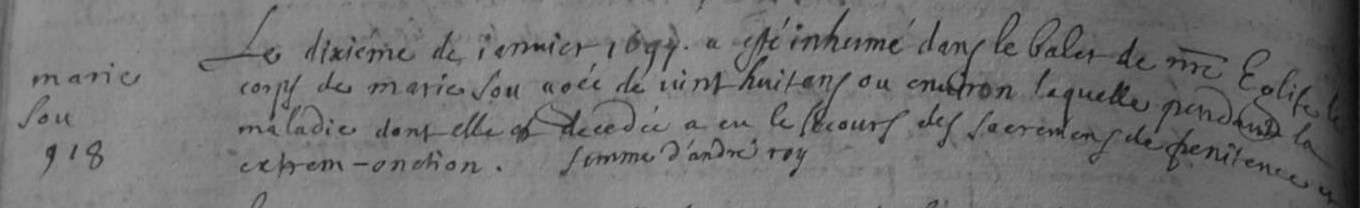 marie
Sou
918
Le dixiéme de ianuier 1697. a esté inhumé dans le balet de nre Eglise le
corps de marie Sou agée de vint huit ans ou environ laquelle pendant la
maladie dont elle est decedée a eu le secours des sacremens de penitence et
extrem-onction. femme d'andré roy